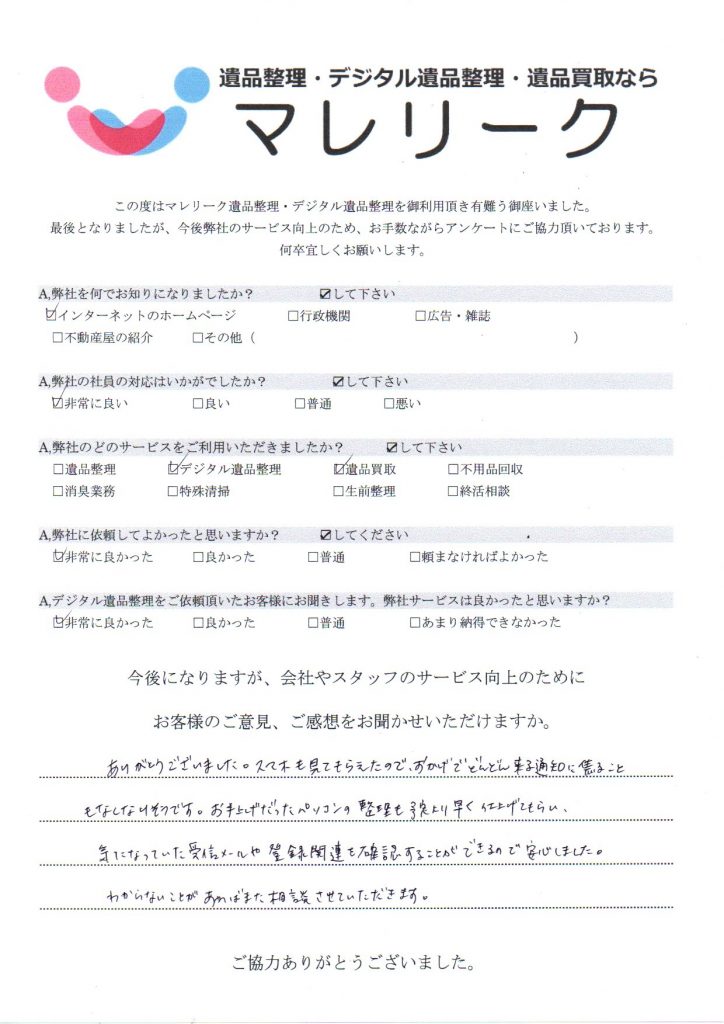 遺品整理・デジタル遺品整理・遺品買取なら
マレリーク
この度はマレリーク遺品整理・デジタル遺品整理を御利用頂き有難う御座いました。
最後となりましたが、今後弊社のサービス向上のため、お手数ながらアンケートにご協力頂いております。
何卒宜しくお願いします。
A,弊社を何でお知りになりましたか? ☑して下さい
☑インターネットのホームページ □行政機関 □広告・雑誌
□不動産屋の紹介 □その他( )
A,弊社の社員の対応はいかがでしたか? ☑して下さい
☑非常に良い □良い □普通 □悪い
A,弊社のどのサービスをご利用いただきましたか? ☑して下さい
□遺品整理 ☑デジタル遺品整理 ☑遺品買取 □不用品回収
□消臭業務 □特殊清掃 □生前整理 □終活相談
A,弊社に依頼してよかったと思いますか? ☑してください
☑非常に良かった □良かった □普通 □頼まなければよかった
A,デジタル遺品整理をご依頼頂いたお客様にお聞きします。弊社サービスは良かったと思いますか?
☑非常に良かった □良かった □普通 □あまり納得できなかった
今後になりますが、会社やスタッフのサービス向上のために
お客様のご意見、ご感想をお聞かせいただけますか。
ありがとうございました。スマホも見てもらえたので、おかげでどんどん来る通知に焦ること
もなしなりそうです。お手上げだったパソコンの整理も予定より早く仕上げてもらい、
気になっていた受信メールや登録関連も確認することができるので安心しました。
わからないことがあればまた相談させていただきます。
ご協力ありがとうございました。